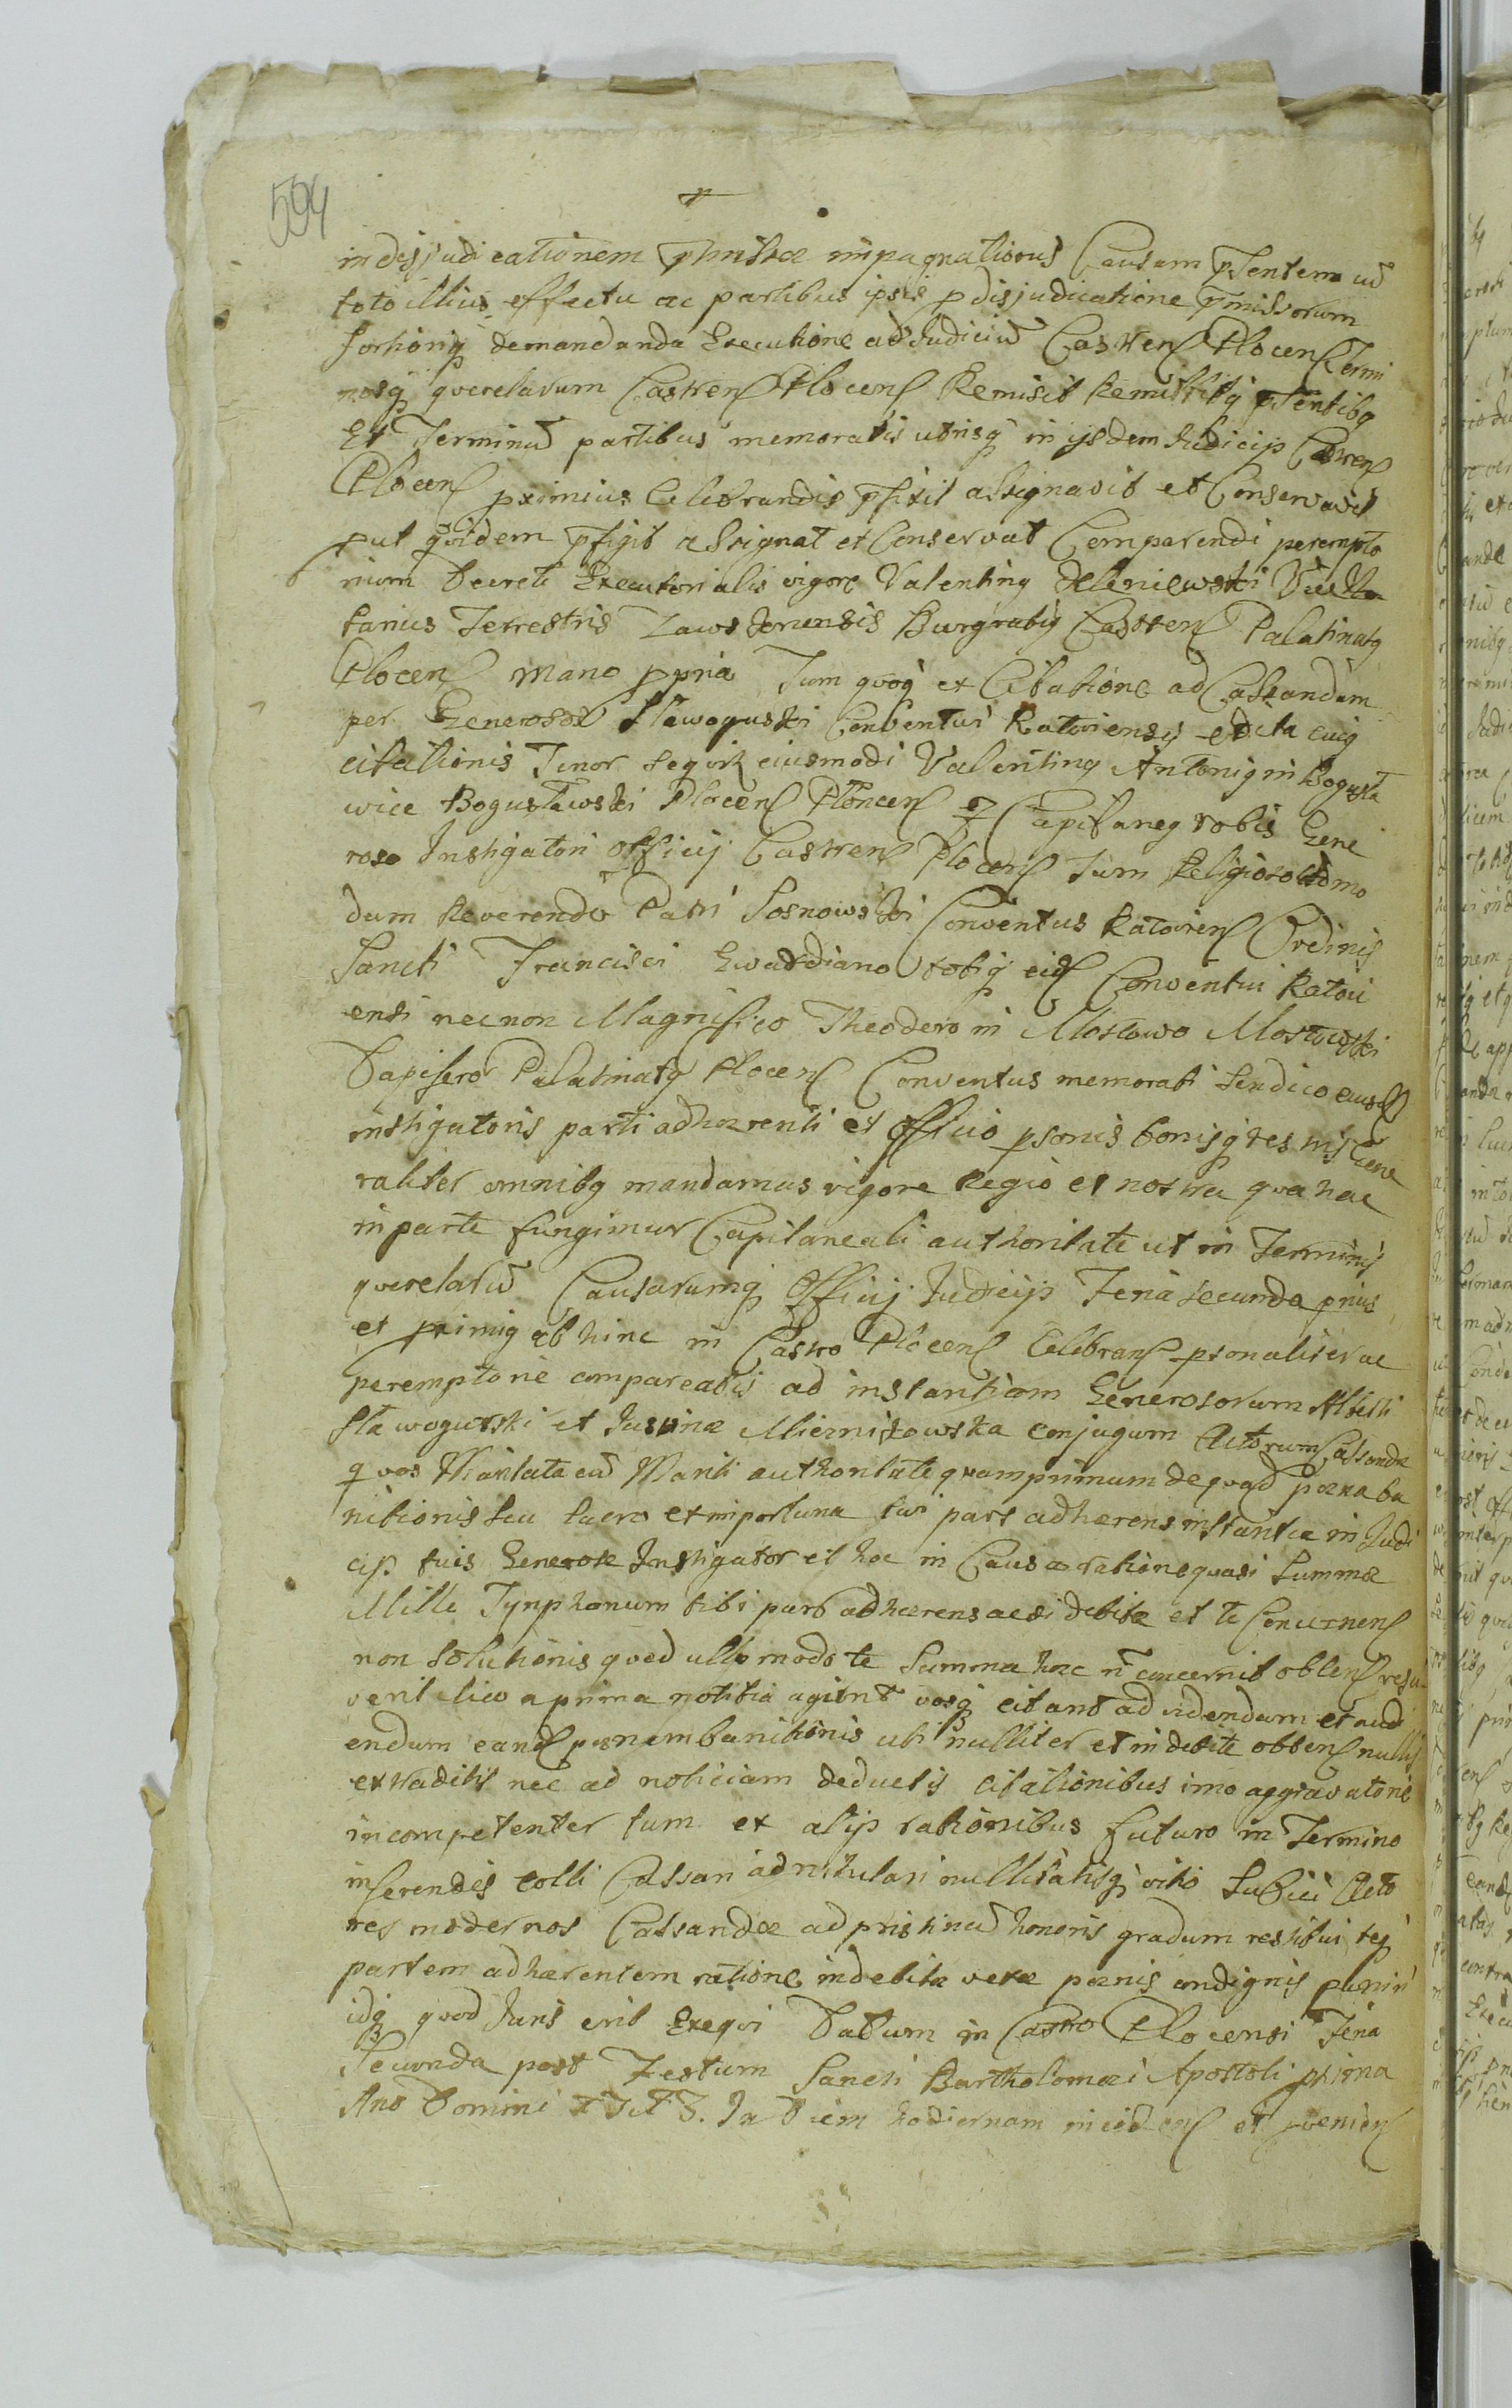 594
in disjudicationem pſmiſsæ impagnationis Cauſam pſentem cū
toto illius effectu ac partibus ipsis p disjudicatione pſmiſsorum
fortioriq demandanda Executione ad Judiciū Caſtren Plocen Termi
nosq querelarum Caſtren Plocen Remisit Remittitq pſentibq
Et Terminū partibus memoratis utrisq in ijsdem Judicijs Caſtren
Plocen proximius Celebrandis pfixit aſsignavit et Conservavit
put quidem pfigit aſsignat et Conservat Comparendi perempto
rium Decreti Executorialis vigore Valentinq
tarius Terrestris Zawskrnensis Burgrabiq Caſtren Palatinatq
Plocen Mano ppria Tum quoq et Citatione ad Caſsandum
per Generosos Sławoguski Conventui Ratoviensi edita cuiq
citationis Tenor seqvit eiusmodi Valentinq Antoniq in Bogusła
wice Bogusławski Plocen Płoncen Capitaneq vobis Gene
roso Instigatori Officij Castren Plocen Tum Religioso Admo
dum Reverendo Patri Sosnowski Conventus Ratovien Ordinis
Sancti Francisci Gwardiano totiq eid Conventui Ratovi
ensi necnon Magnifico Theodoro in Mostowo Mostowski
Dapifero Palatinatq Plocen Conventus memorati Sendico eiusd
instigatoris parti adhærenti et Officio psonis bonisq res tris Gene
raliter omnibq mandamus vigore Regio et nostra qva hac
in parte fungimur Capitaneali authoritate ut in Terminis
qverelarū Causarumq Officij Judicijs Feria secunda prius
et proximiq abhinc in Castro Plocen Celebran psonaliter ac
peremptorie compareatis ad instantiam Generosorum Alberti
Sławogurski et Justinæ Miernikowska conjugum Actorum Caſsandæ
qvos Maritata cū Mariti authoritate quamprimum de qvad pæna ba
nitionis seu lucro ex importuna tui pars adhærens instantia in Judi
cijs tuis Generose Instigator et hoc in Causæ ratione quasi Summæ
Mille Tynphonum tibi pars adhærens acsi debitæ et te Concernen
non Solutionis qvod ullo modo te Summa hæc n concernit obten
verit dico a prima notitia agunt vosq citant ad videndum et aud
endum eand pænam banitionis uti nulliter et indebite obten nullis
ex traditis nec ad noticiam deductis citationibus imo aggravatorie
incompetenter tum ex alijs rationibus futuro in Termino
inferendis tolli Caſsari adnihilari nullitatisq vitio Subijci Acto
res modernos Caſsandæ ad pristinū honoris gradum restitui teq
partem adhærentem ratione indebitæ vexæ pænis condignis puniri
idq qvod Juris erit Exeqvi Datum in Castro Plocensi Feria
Secunda post Festum Sancti Bartholomæi Apostoli proxima
Ano Domini In Diem hodiernam inciden et pvenien